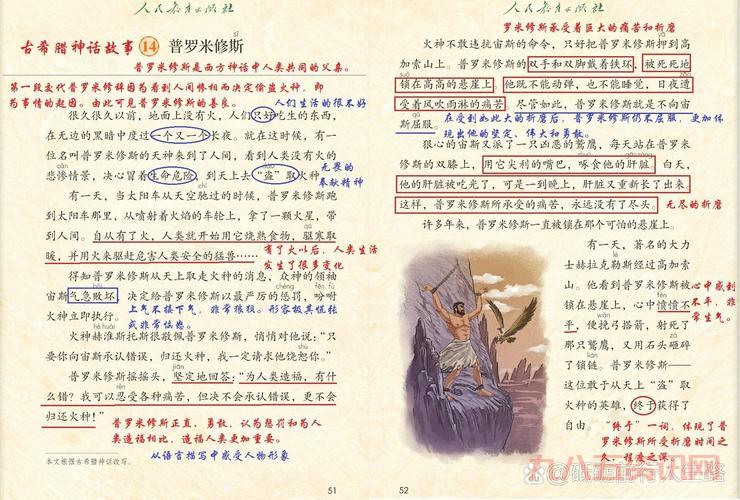 人民教育出版社
古希腊神话故事 14 普罗米修斯
sī
普罗米修斯是西方神话中人类共同的父亲。
第一段交代普罗米修斯因为看到人间惨相而决定偷盗火种，即
为事情的起因。由此可见普罗米修斯的善良。
人们生活的很不好
很久很久以前，地面上没有火，人们只好吃生的东西，
在无边的黑暗中度过一个又一个长夜。就在这时候，有一
位名叫普罗米修斯的天神来到了人间，看到人类没有火的
悲惨情景，决心冒着生命危险，到天上去“盗”取火种。
无畏的
奉献精神
有一天，当太阳车从天空驰过的时候，普罗米修斯跑
到太阳车那里，从喷射着火焰的车轮上，拿了一颗火星，带
到人间。自从有了火，人类就开始用它烧熟食物，驱寒取
暖，并用火来驱赶危害人类安全的猛兽……
有了火以后，人类生活
发生了很多变化
得知普罗米修斯从天上取走火种的消息，众神的领袖
宙斯气急败坏，决定给普罗米修斯以最严厉的惩罚，吩咐
火神立即执行。
上气不接下气，非常狼狈。形容极其慌张
或非常恼怒。
火神赫淮斯托斯很敬佩普罗米修斯，悄悄对他说：“只
要你向宙斯承认错误，归还火种，我一定请求他饶恕你。”
普罗米修斯摇摇头，坚定地回答：“为人类造福，有什
么错？我可以忍受各种痛苦，但决不会承认错误，更不会
归还火种！”
普罗米修斯正直、勇敢，认为惩罚和为人
类造福相比，造福人类更加重要。
本文根据古希腊神话改写。
从语言描写中感受人物形象
51
人民教育出版社
普罗米修斯承受着巨大的痛苦和折磨
火神不敢违抗宙斯的命令，只好把普罗米修斯押到高
加索山上。普罗米修斯的双手和双脚戴着铁环，被死死地
锁在高高的悬崖上。他既不能动弹，也不能睡觉，日夜遭
受着风吹雨淋的痛苦。尽管如此，普罗米修斯就是不向宙
斯屈服。
在受到如此大的折磨后，普罗米修斯仍不屈服，更加体
现出他的坚定、伟大和勇敢。
狠心的宙斯又派了一只凶恶的鹫鹰，每天站在普罗米
修斯的双膝上，用它尖利的嘴巴，啄食他的肝脏。白天，
他的肝脏被吃光了，可是一到晚上，肝脏又重新长了出来。
这样，普罗米修斯所承受的痛苦，永远没有了尽头。
无尽的折磨
许多年来，普罗米修斯一直被锁在那个可怕的悬崖上。
有一天，著名的大力
士赫拉克勒斯经过高加索
山。他看到普罗米修斯被
锁在悬崖上，心中愤愤不
平，便挽弓搭箭，射死了
那只鹫鹰，又用石头砸碎
了锁链。普罗米修斯——
这位敢于从天上“盗”取
火种的英雄，终于获得了
自由。
心中感到
不平，非
常生气。
“终于”一词，体现了普
罗米修斯所受折磨时间之
久、程度之深。
52
九八五资讯网